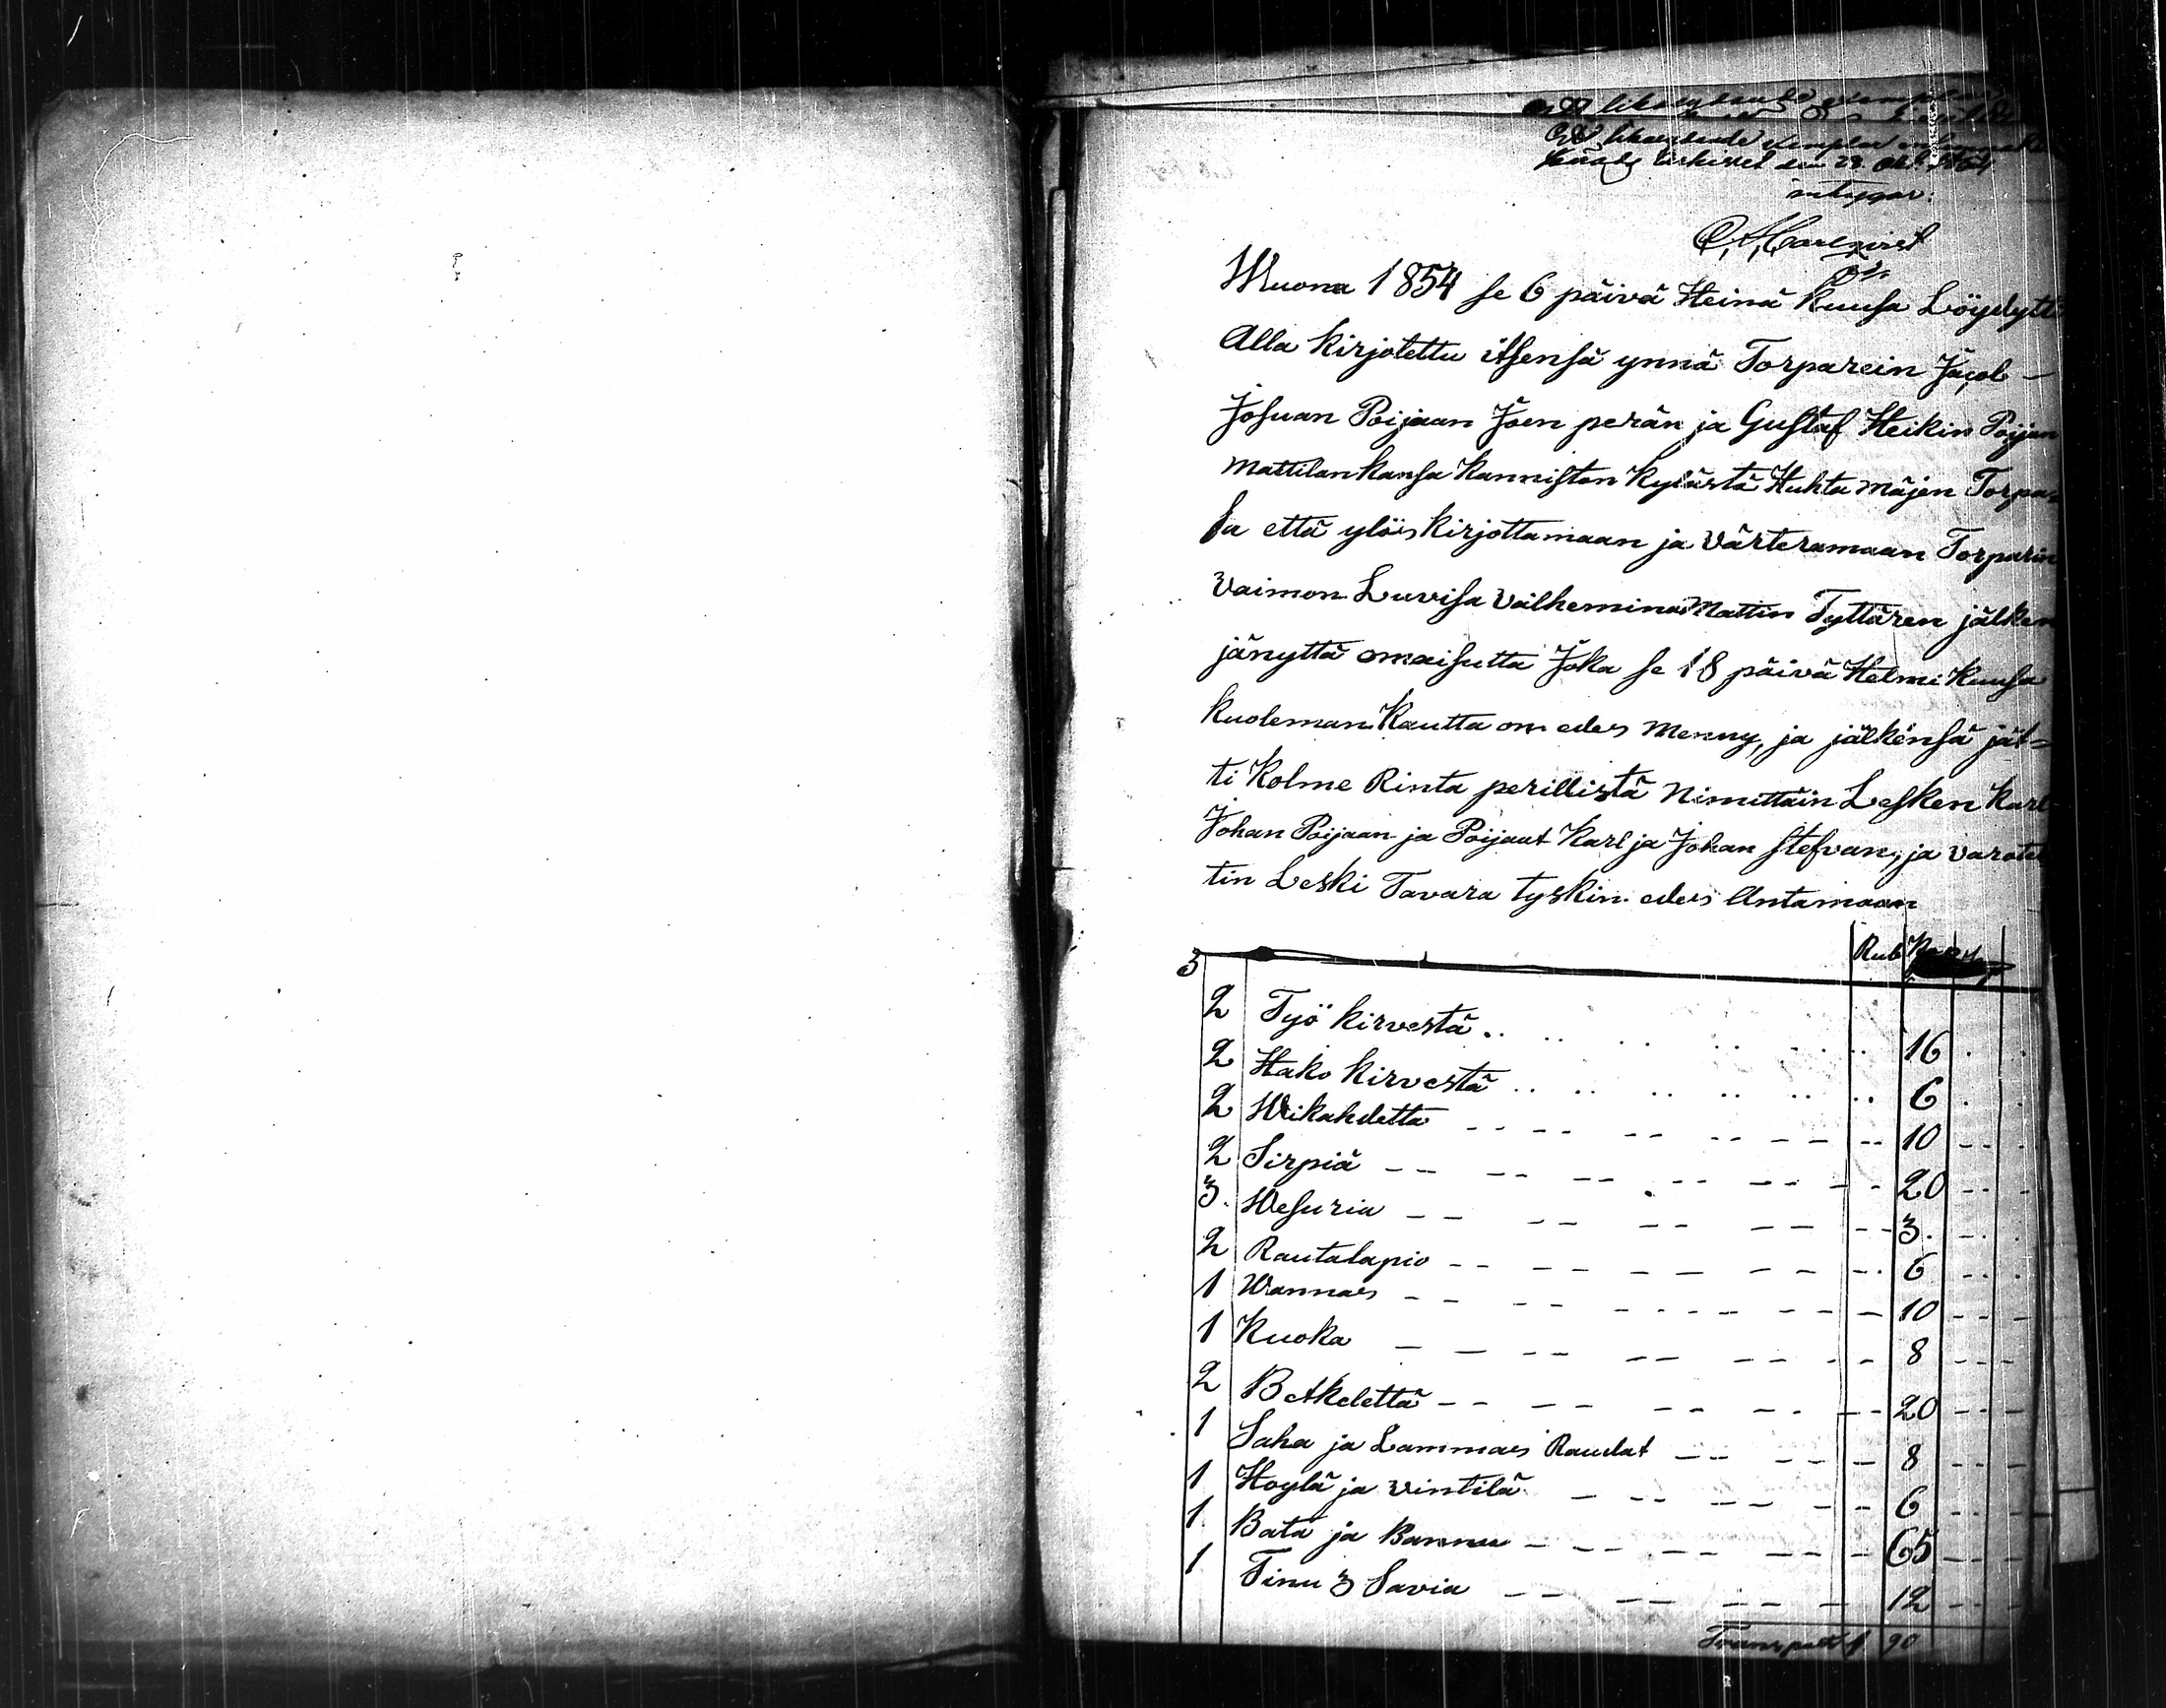 den 28. Okt.
intygar:
Wuona 1854 se 6 päivä Heinä Kuusa Löydytti
Alla Kirjotettu itsensä ynnä Torparein Jacob
Josuan Poijaan Joen perän ja Gustaf Heikin Poijan
Mattilan Kansa Kanniston Kylästä Huhta mäjen Torpa=
sa että ylöis Kirjottamaan ja Värteramaan Torparin
Vaimon Luvisa Vilhemina Mattin Tyttären jälken
jänyttä omaisutta Joka se 18 päivä Helmi Kuusa
Kuoleman Kautta on edes Menny, ja jälkensä jät=
ti Kolme Rinta perillistä Nimittäin Lesken Karl
Johan Poijaan ja Poijaat Karl ja Johan Stefvan, ja varote
tin Leski Tavara tyskin edes Antamaan
Rub Kop
3
2 Työ kirvestä 16
2 Hako kirvestä 6
2 Wikahdetta 10
2 Sirpiä 20
3. Wesuria 3.
2 Rautalapio 6
1 Wannas 10
1 Kuoka 8
2 Betkelettä 20
1 Saha ja Lammas Raudat 8
1 Hoylä ja vintilä 6
1. Bata ja Bannu 65
1 Tinu 3 Savia 12
Transport 1 90